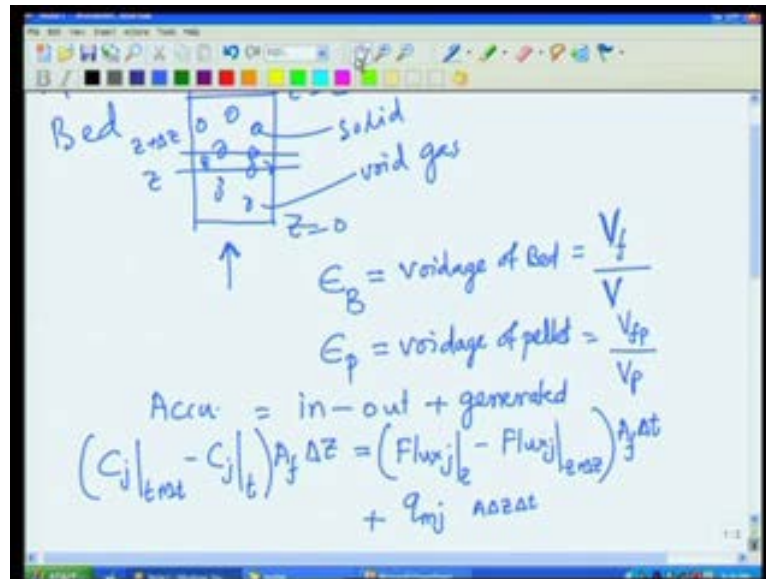 Bed
z+Δz
z
solid
void gas
z=0
ϵ_B = voidage of Bed = V_f / V
ϵ_p = voidage of pellet = V_fp / V_p
Accu. = in-out + generated
(C_j|_{t+Δt} - C_j|_t) A_f Δz = (Flux_j|_z - Flux_j|_{z+Δz}) A_f Δt
+ q_mj AΔzΔt